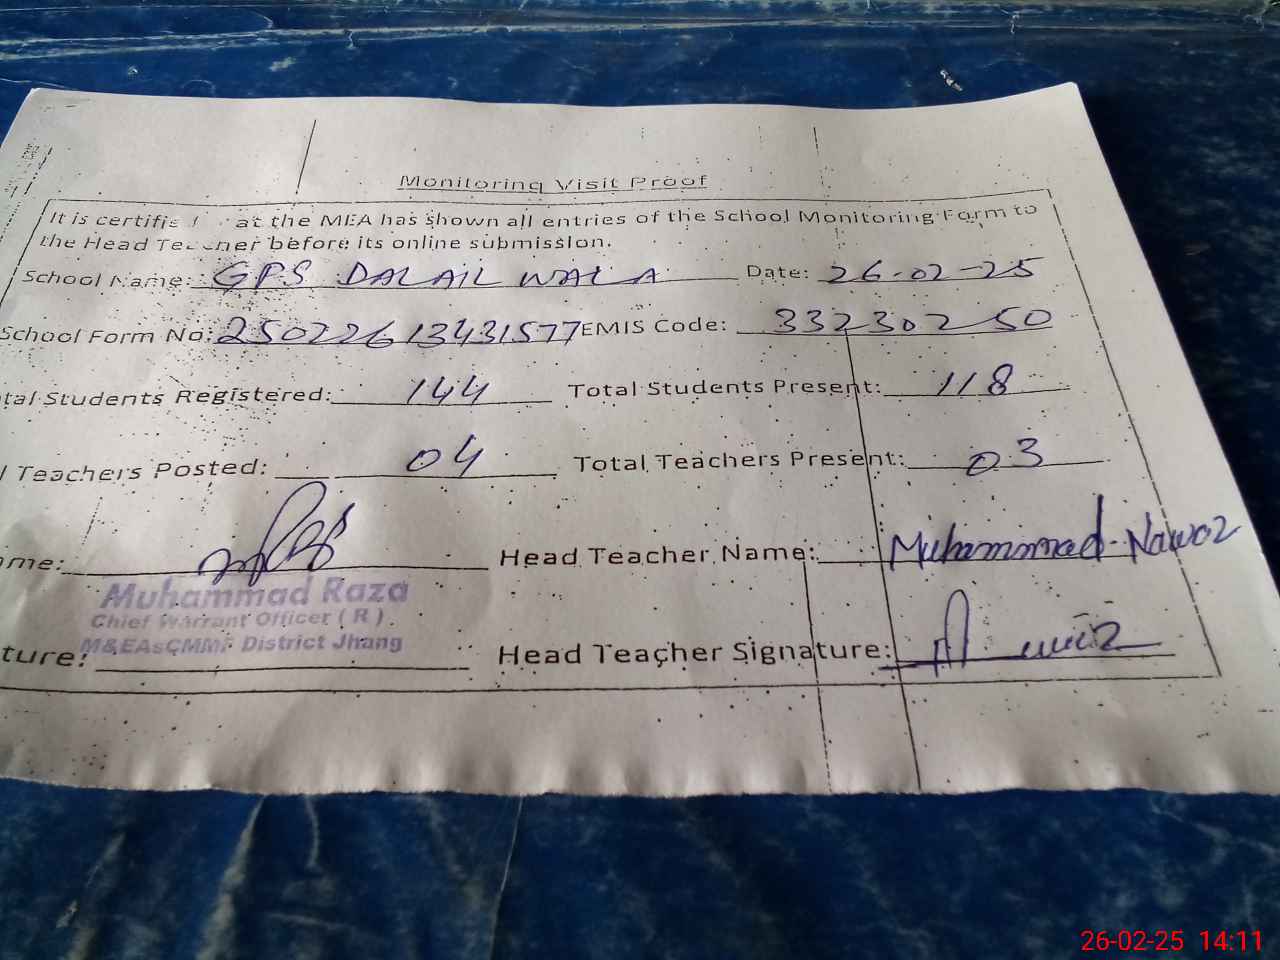 Monitoring Visit Proof
It is certifie at the MEA has shown all entries of the School Monitoring Form to
the Head Teacher before its online submission.
School Name: GPS DALAIL WALA Date: 26-02-25
School Form No: 25022613431577 EMIS Code: 33230250
tal Students Registered: 144 Total Students Present: 118
l Teachers Posted: 04 Total Teachers Present: 03
ame: Head Teacher Name: Muhammad Nawaz
Muhammad Raza
Chief Warrant Officer ( R )
M&EAsCMMF District Jhang
ture: Head Teacher Signature:
26-02-25 14:11